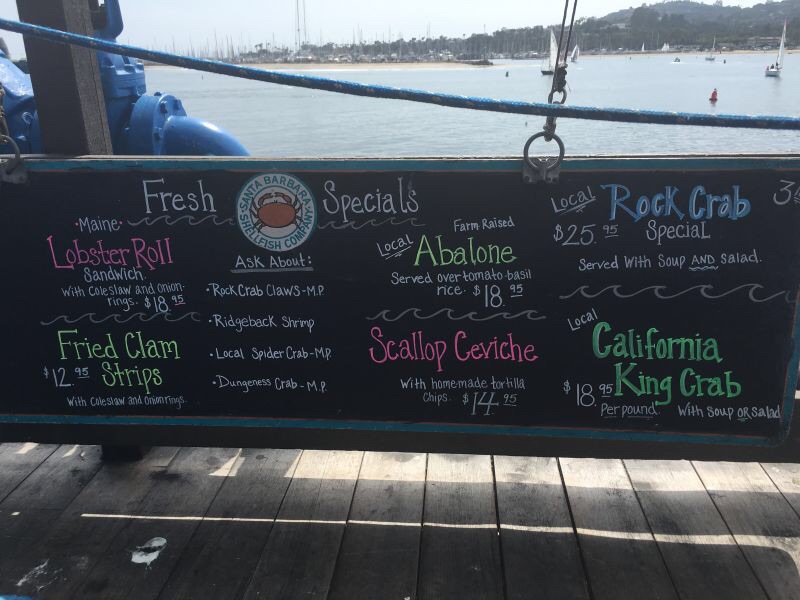 Fresh
SANTA BARBARA
SHELLFISH COMPANY
Specials
• Maine •
Lobster Roll
Sandwich
With Coleslaw and onion-
rings. $18.95
Fried Clam
$12.95 Strips
With Coleslaw and Onionrings.
Ask About:
• Rock Crab Claws - M.P.
• Ridgeback Shrimp
• Local Spider Crab - M.P.
• Dungeness Crab - M.P.
Farm Raised
Local
Abalone
Served over tomato-basil
rice. $18.95
Scallop Ceviche
With homemade tortilla
Chips. $14.95
Local Rock Crab
$25.95 Special
Served With Soup AND Salad.
Local
California
King Crab
$18.95
Per pound. With Soup OR Salad